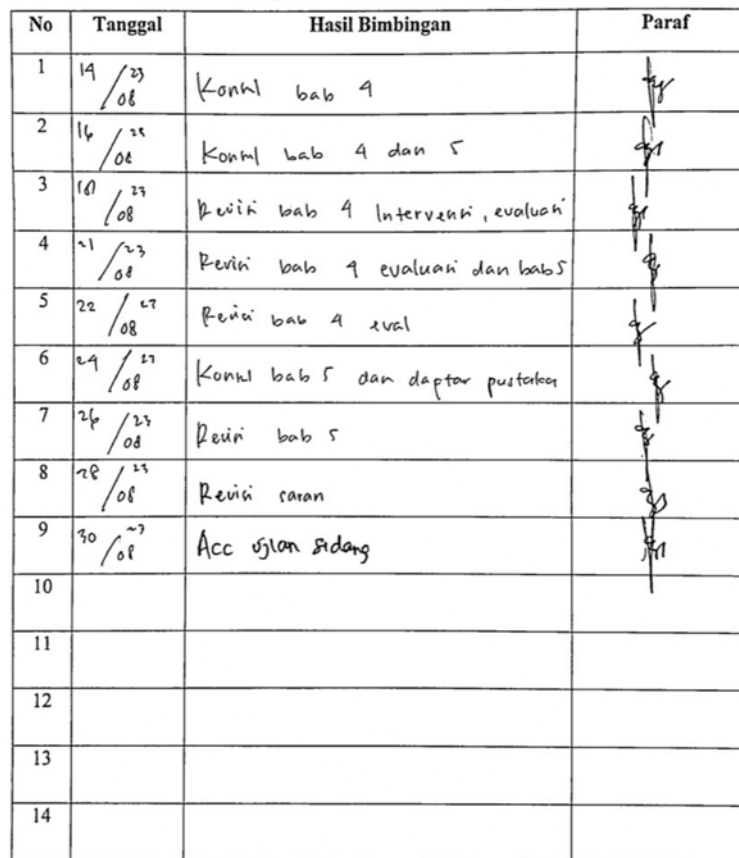 No Tanggal Hasil Bimbingan Paraf
1 14/08 23 Konsul bab 4
2 16/08 23 Konsul bab 4 dan 5
3 /08 23 Revisi bab 4 Intervensi, evaluasi
4 21/08 23 Revisi bab 4 evaluasi dan bab 5
5 22/08 23 Revisi bab 4 eval
6 24/08 23 Konsul bab 5 dan daptar pustaka
7 26/08 23 Revisi bab 5
8 28/08 23 Revisi saran
9 30/08 23 Acc ujian sidang
10
11
12
13
14